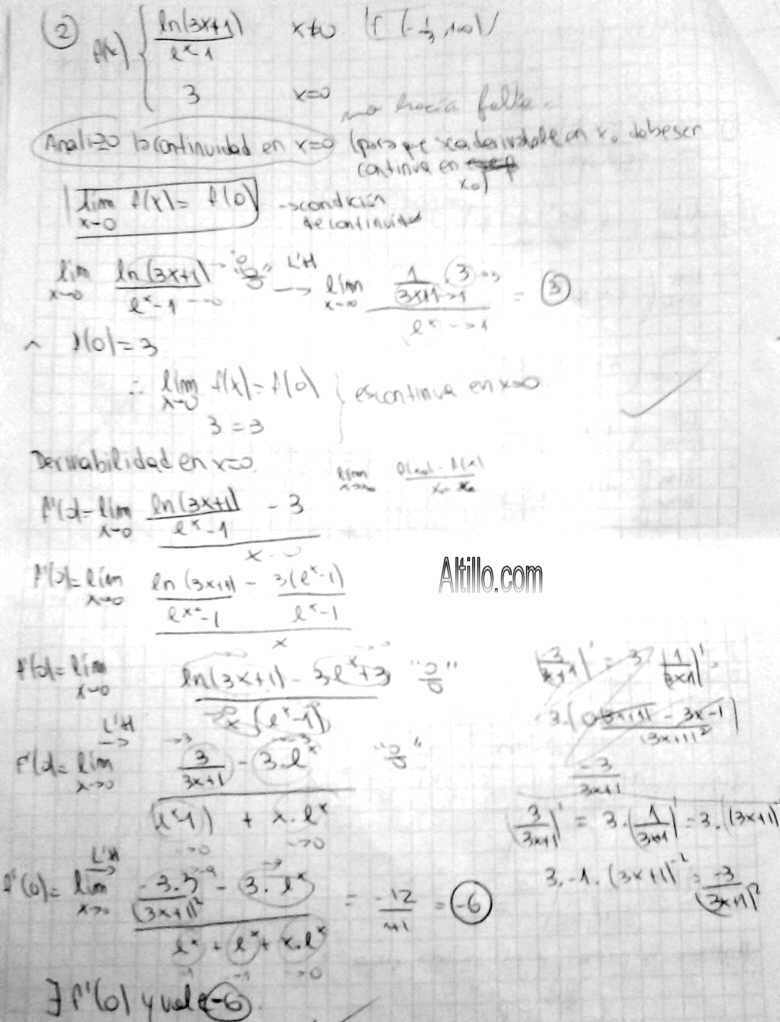 ② f(x) { ln(3x+1) / e^x-1   x≠0   (-1/3, +∞)
3   x=0
no hacía falta.
Analizo la continuidad en x=0 (para que sea derivable en x₀ debe ser
continua en x₀)
lim x→0 f(x) = f(0) → condición
de continuidad
lim x→0 ln(3x+1) / e^x-1 "0/0" L'H → lim x→0 (1/(3x+1) · 3) / e^x = ③
^ f(0)=3
∴ lim x→0 f(x) = f(0) } es continua en x=0
3=3
Derivabilidad en x=0
f'(0)= lim x→0 (ln(3x+1) / e^x-1 - 3) / x-0
Altillo.com
f'(0)= lim x→0 (ln(3x+1) / e^x-1 - 3(e^x-1) / e^x-1) / x
f'(0)= lim x→0 (ln(3x+1) - 3e^x+3) / x(e^x-1) "0/0"
L'H
f'(0)= lim x→0 (3/(3x+1) - 3·e^x) / ((e^x-1) + x·e^x) "0/0"
(3/(3x+1))' = 3·(1/(3x+1))' = 3·((3x+1)
3·-1·(3x+1) = -3/(3x+1)²
L'H
f'(0)= lim x→0 (-3·3/(3x+1)² - 3·e^x) / (e^x + e^x + x·e^x) = -12/1+1 = -6
∃ f'(0) y vale -6